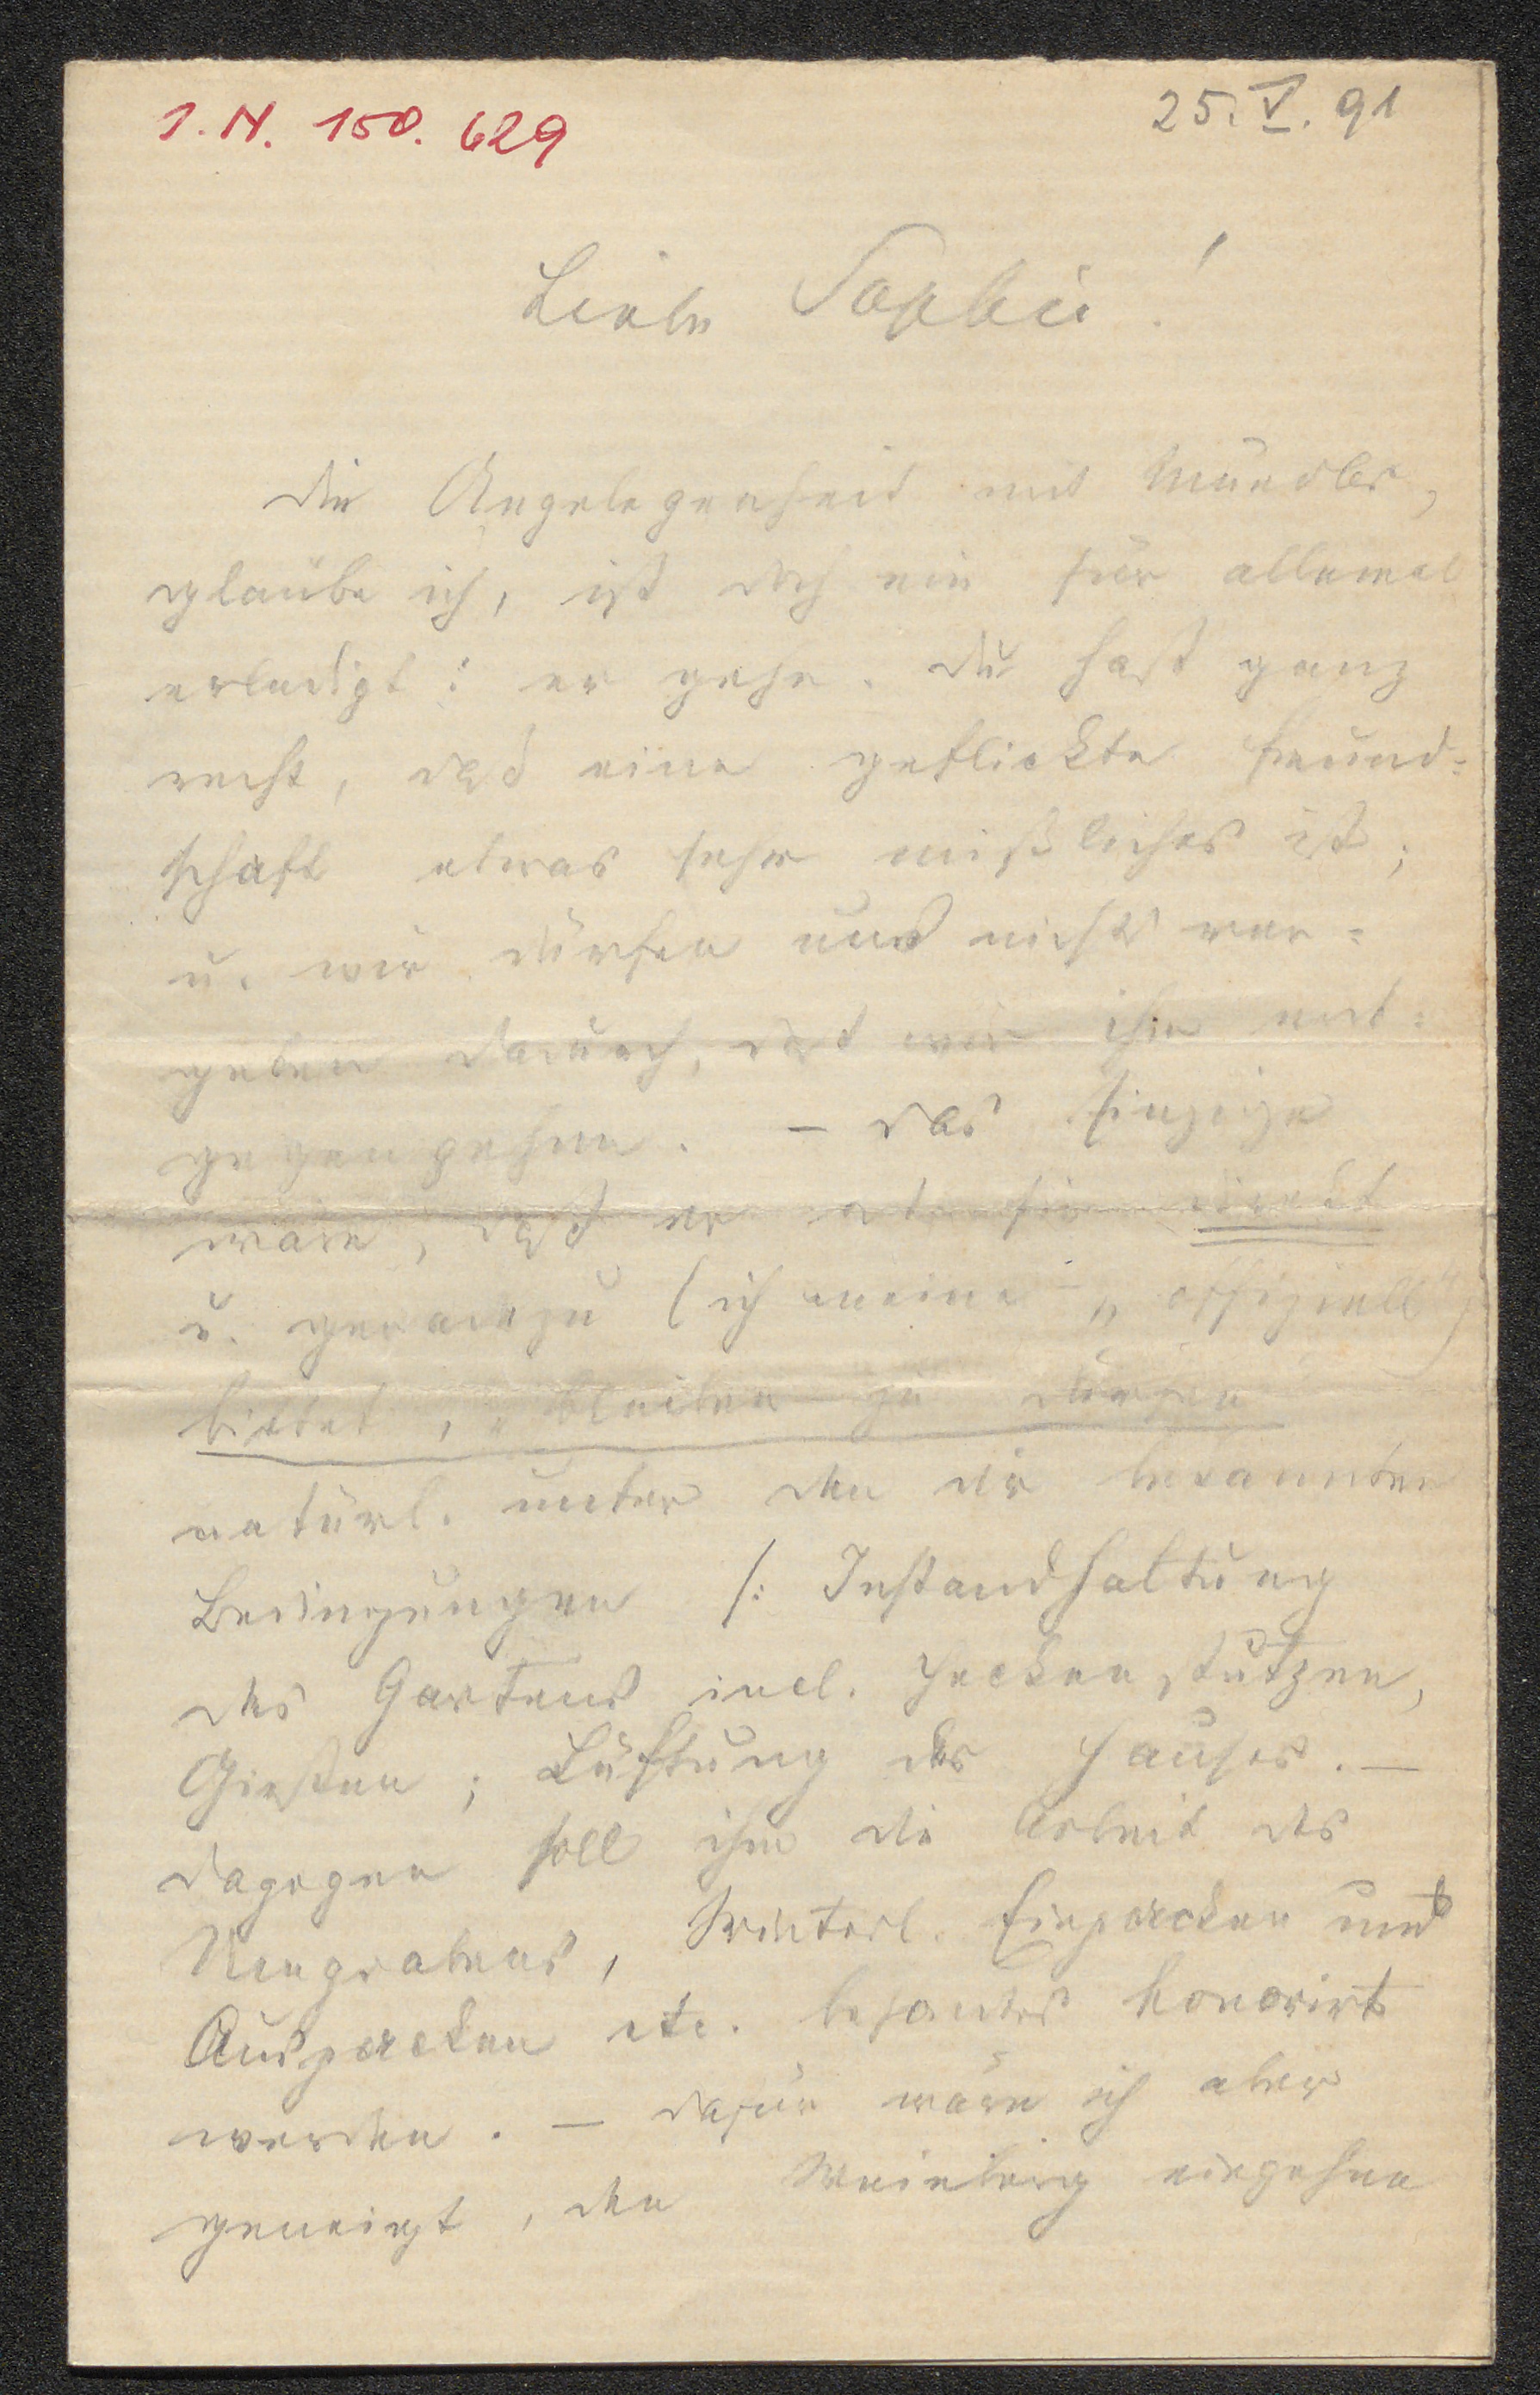 I. N. 150. 629
25. V. 91
Liebe Sophie!
die Angelegenheit mit Mündler,
glaube ich, ist doch ein für allemal
erledigt: er gehe. Du hast ganz
recht, daß eine geflickte Freund=
schaft etwas sehr mißliches ist;
u. wir dürfen uns nichts ver=
geben dadurch, daß wir ihm ent=
gegengehen. – das Einzige
wäre, daß er direkt
u. geradezu (ich meine „offiziell")
bittet, „bleiben zu dürfen"
natürl. unter den dir bekannten
Bedingungen /: Instandhaltung
des Gartens incl. Heckenstutzen,
Gießen; Lüftung des Hauses. –
dagegen soll ihm die Arbeit des
Umgrabens, Winterl. Einpacken und
Auspacken etc. besonders honorirt
werden. – dafür wäre ich aber
geneigt, den Weinberg eingehen